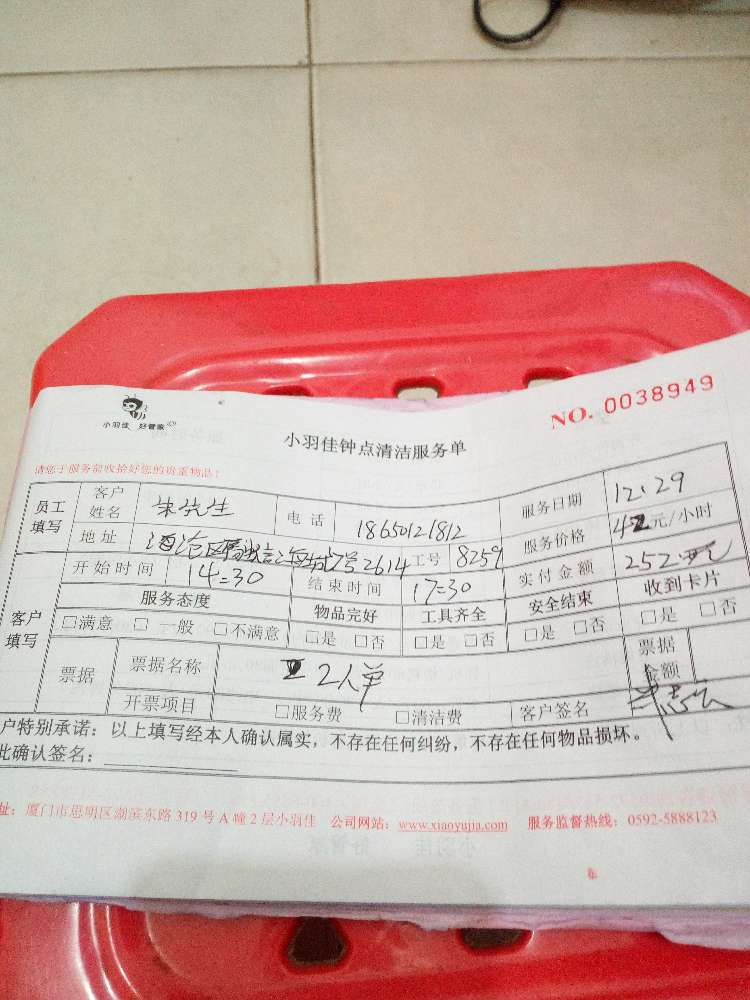 小羽佳 好管家
NO. 0038949
小羽佳钟点清洁服务单
请您于服务前收拾好您的贵重物品!
员工填写 客户姓名 朱先生 电话 18650121812 服务日期 12.29
地址 海沧区 7号2614 工号 8259 服务价格 42元/小时
开始时间 14=30 结束时间 17=30 实付金额 252元
客户填写 服务态度 物品完好 工具齐全 安全结束 收到卡片
□满意 □一般 □不满意 □是 □否 □是 □否 □是 □否 □是 □否
票据 票据名称 2人单 票据金额
开票项目 □服务费 □清洁费 客户签名
户特别承诺：以上填写经本人确认属实，不存在任何纠纷，不存在任何物品损坏。
此确认签名：
址：厦门市思明区湖滨东路319号A幢2层小羽佳 公司网站：www.xiaoyujia.com 服务监督热线：0592-5888123